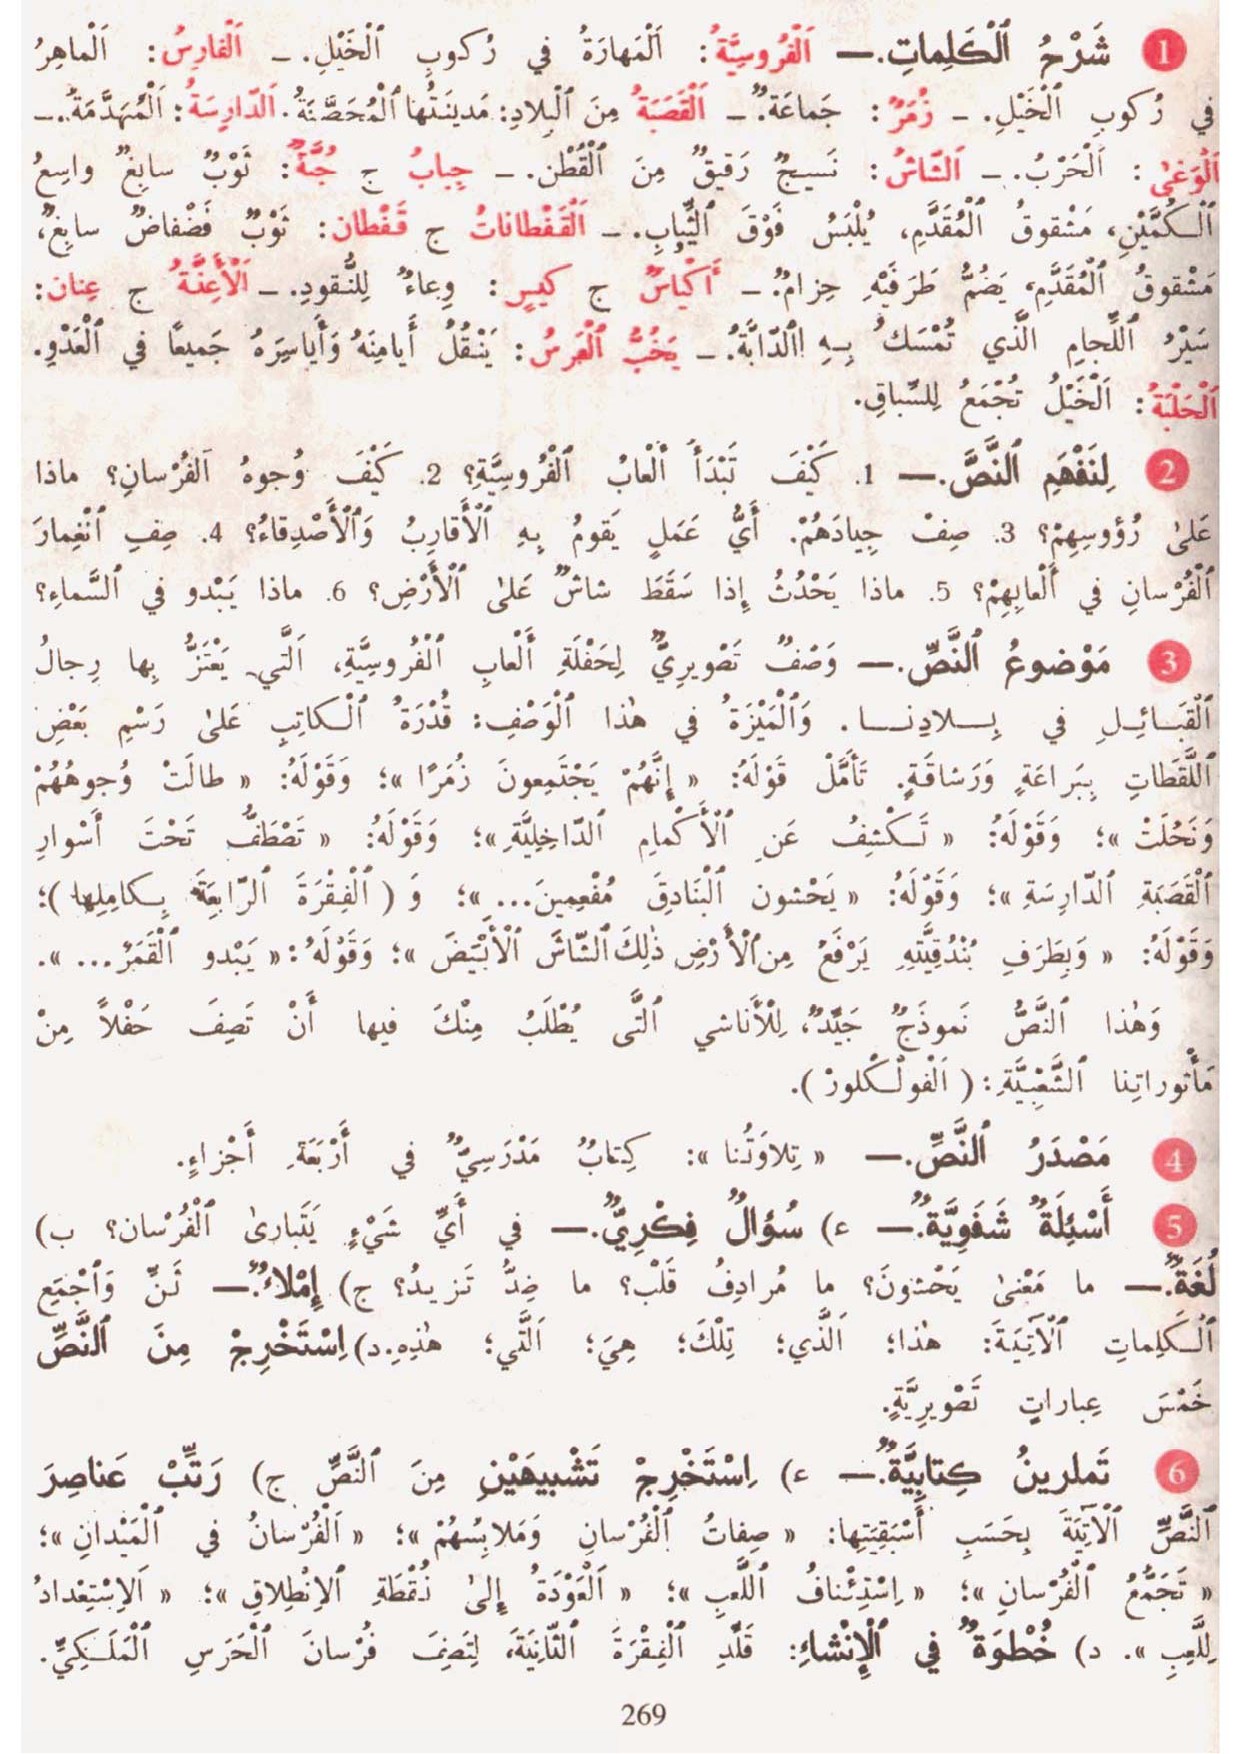 1 شَرْحُ ٱلْكَلِماتِ.— اَلْفُروسِيَّةُ: اَلْمَهارَةُ في رُكوبِ ٱلْخَيْلِ. – اَلْفارِسُ: اَلْماهِرُ
في رُكوبِ ٱلْخَيْلِ. – زُمَرٌ: جَماعَةٌ. – اَلْقَصَبَةُ مِنَ ٱلْبِلادِ: مَدينَتُها ٱلْمُحَصَّنَةُ. اَلدّارِسَةُ: اَلْمُهَدَّمَةُ. –
اَلْوَغىٰ: اَلْحَرْبُ. – اَلشّاشُ: نَسيجٌ رَقيقٌ مِنَ ٱلْقُطْنِ. – جِبابُ ج جُبَّةٌ: ثَوْبٌ سابِغٌ واسِعُ
ٱلْكُمَّيْنِ، مَشْقوقُ ٱلْمُقَدَّمِ، يُلْبَسُ فَوْقَ ٱلثِّيابِ. – اَلْقَفْطاناتُ ج قَفْطان: ثَوْبٌ فَضْفاضٌ سابِغٌ،
مَشْقوقُ ٱلْمُقَدَّمِ، يَضُمُّ طَرَفَيْهِ حِزامٌ. – أَكْياسٌ ج كيسٍ: وِعاءٌ لِلنُّقودِ. – اَلْأَعِنَّةُ ج عِنان:
سَيْرُ ٱللِّجامِ الَّذي تُمْسَكُ بِهِ ٱلدّابَّةُ. – يَخُبُّ ٱلْفَرسُ: يَنْقُلُ أَيامِنَهُ وَأَياسِرَهُ جَميعًا في ٱلْعَدْوِ.
اَلْحَلْبَةُ: اَلْخَيْلُ تُجْمَعُ لِلسِّباقِ.
2 لِنَفْهَمِ ٱلنَّصَّ.— 1. كَيْفَ تَبْدَأُ أَلْعابُ ٱلْفُروسِيَّةِ؟ 2. كَيْفَ وُجوهُ ٱلفُرْسانِ؟ ماذا
عَلىٰ رُؤوسِهِمْ؟ 3. صِفْ جِيادَهُمْ. أَيُّ عَمَلٍ يَقومُ بِهِ ٱلْأَقارِبُ وَٱلْأَصْدِقاءُ؟ 4. صِفِ ٱنْغِمارَ
ٱلْفُرْسانِ في أَلْعابِهِمْ؟ 5. ماذا يَحْدُثُ إِذا سَقَطَ شاشٌ عَلىٰ ٱلْأَرْضِ؟ 6. ماذا يَبْدو في ٱلسَّماءِ؟
3 مَوْضوعُ ٱلنَّصِّ.— وَصْفٌ تَصْويرِيٌّ لِحَفْلَةِ أَلْعابِ ٱلْفُروسِيَّةِ، اَلَّتي يَعْتَزُّ بِها رِجالُ
ٱلْقَبائِلِ في بِلادِنا. وَٱلْمَيْزَةُ في هٰذا ٱلْوَصْفِ: قُدْرَةُ ٱلْكاتِبِ عَلىٰ رَسْمِ بَعْضِ
ٱللَّقَطاتِ بِبَراعَةٍ وَرَشاقَةٍ. تَأَمَّلْ قَوْلَهُ: « إِنَّهُمْ يَجْتَمِعونَ زُمَرًا »؛ وَقَوْلَهُ: « طالَتْ وُجوهُهُمْ
وَنَحُلَتْ »؛ وَقَوْلَهُ: « تَكْشِفُ عَنِ ٱلْأَكْمامِ ٱلدّاخِلِيَّةِ »؛ وَقَوْلَهُ: « تَصْطَفُّ تَحْتَ أَسْوارِ
ٱلْقَصَبَةِ ٱلدّارِسَةِ »؛ وَقَوْلَهُ: « يَحْشون ٱلْبَنادِقَ مُفْعِمينَ... »؛ وَ ( ٱلْفِقْرَةَ ٱلرّابِعَةَ بِكامِلِها )؛
وَقَوْلَهُ: « وَبِطَرَفِ بُنْدُقِيَّتِهِ يَرْفَعُ مِن ٱلْأَرْضِ ذٰلِكَ ٱلشّاشَ ٱلْأَبْيَضَ »؛ وَقَوْلَهُ: « يَبْدو ٱلْقَمَرُ... ».
وَهٰذا ٱلنَّصُّ نَموذَجٌ جَيِّدٌ، لِلْأَناشي ٱلَّتي يُطْلَبُ مِنْكَ فيها أَنْ تَصِفَ حَفْلاً مِنْ
مَأْثوراتِنا ٱلشَّعْبِيَّةِ: ( اَلْفولْكْلورْ ).
4 مَصْدَرُ ٱلنَّصِّ.— « تِلاوَتُنا »: كِتابٌ مَدْرَسِيٌّ في أَرْبَعَةِ أَجْزاءٍ.
5 أَسْئِلَةٌ شَفَوِيَّةٌ.— ء) سُؤالٌ فِكْرِيٌّ.— في أَيِّ شَيْءٍ يَتَبارىٰ ٱلْفُرْسان؟ ب)
لُغَةٌ.— ما مَعْنىٰ يَحْشونَ؟ ما مُرادِفُ قَلْب؟ ما ضِدُّ تَزيدُ؟ ج) إِمْلاءٌ.— ثَنِّ وَٱجْمَعِ
ٱلْكَلِماتِ ٱلْآتِيَةَ: هٰذا؛ اَلَّذي؛ تِلْكَ؛ هِيَ؛ اَلَّتي؛ هٰذِهِ. د) اِسْتَخْرِجْ مِنَ ٱلنَّصِّ
خَمْسَ عِباراتٍ تَصْويرِيَّةٍ.
6 تَمارينُ كِتابِيَّةٌ.— ء) اِسْتَخْرِجْ تَشْبيهَيْنِ مِنَ ٱلنَّصِّ ج) رَتِّبْ عَناصِرَ
ٱلنَّصِّ ٱلْآتِيَةَ بِحَسَبِ أَسْبَقِيَتِها: « صِفاتُ ٱلْفُرْسانِ وَمَلابِسُهُمْ »؛ « اَلْفُرْسانُ في ٱلْمَيْدانِ »؛
« تَجَمُّعُ ٱلْفُرْسانِ »؛ « اِسْتِئْنافُ ٱللَّعِبِ »؛ « اَلْعَوْدَةُ إِلىٰ نُقْطَةِ ٱلاِنْطِلاقِ »؛ « اَلاِسْتِعْدادُ
لِلَّعِبِ ». د) خُطْوَةٌ في ٱلْإِنْشاءِ: قَلِّدِ ٱلْفِقْرَةَ ٱلثّانِيَةَ، لِتَصِفَ فُرْسانَ ٱلْحَرَسِ ٱلْمَلَكِيِّ.
269